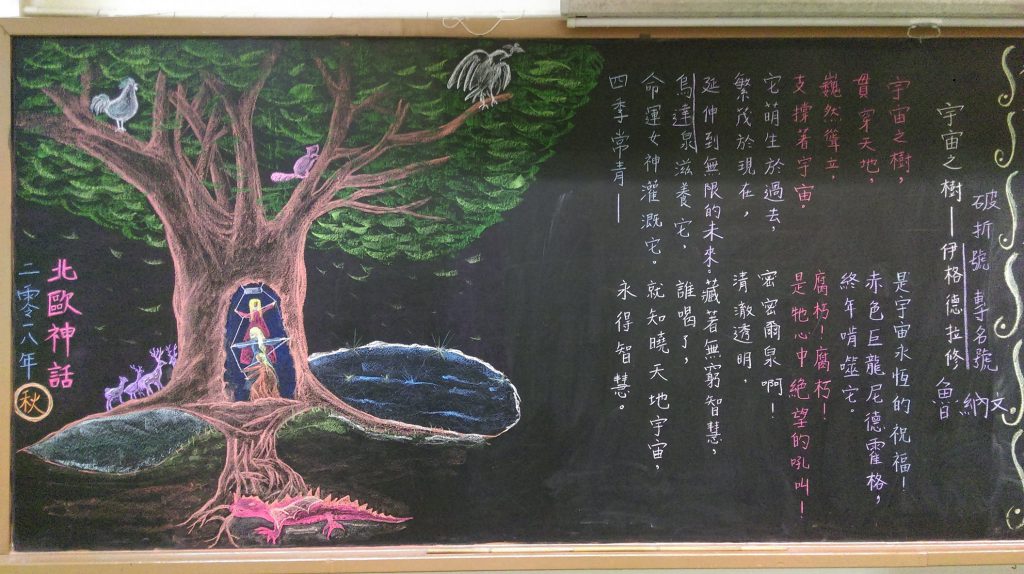 破折號 專名號
宇宙之樹—伊格德拉修
魯納文
宇宙之樹，
貫穿天地，
巍然聳立，
支撐著宇宙。
它萌生於過去，
繁茂於現在，
延伸到無限的未來；
烏達泉滋養它，
命運女神灌溉它。
四季常青——
是宇宙永恆的祝福！
赤色巨龍尼德霍格，
終年啃噬它。
腐朽！腐朽！
是牠心中絕望的吼叫！
密密爾泉啊！
清澈透明，
藏著無窮智慧，
誰喝了，
就知曉天地宇宙，
永得智慧。
北歐神話
二零一八年 秋